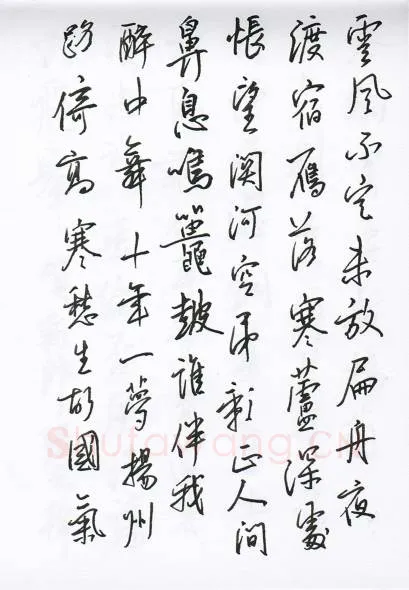 雲風不定未放扁舟夜
渡宿鴈落寒蘆深處
悵望関河空吊影正人間
鼻息鳴鼉皷誰伴我
醉中舞十年一夢揚州
路倚高寒愁生故國氣
Shufawang.CN